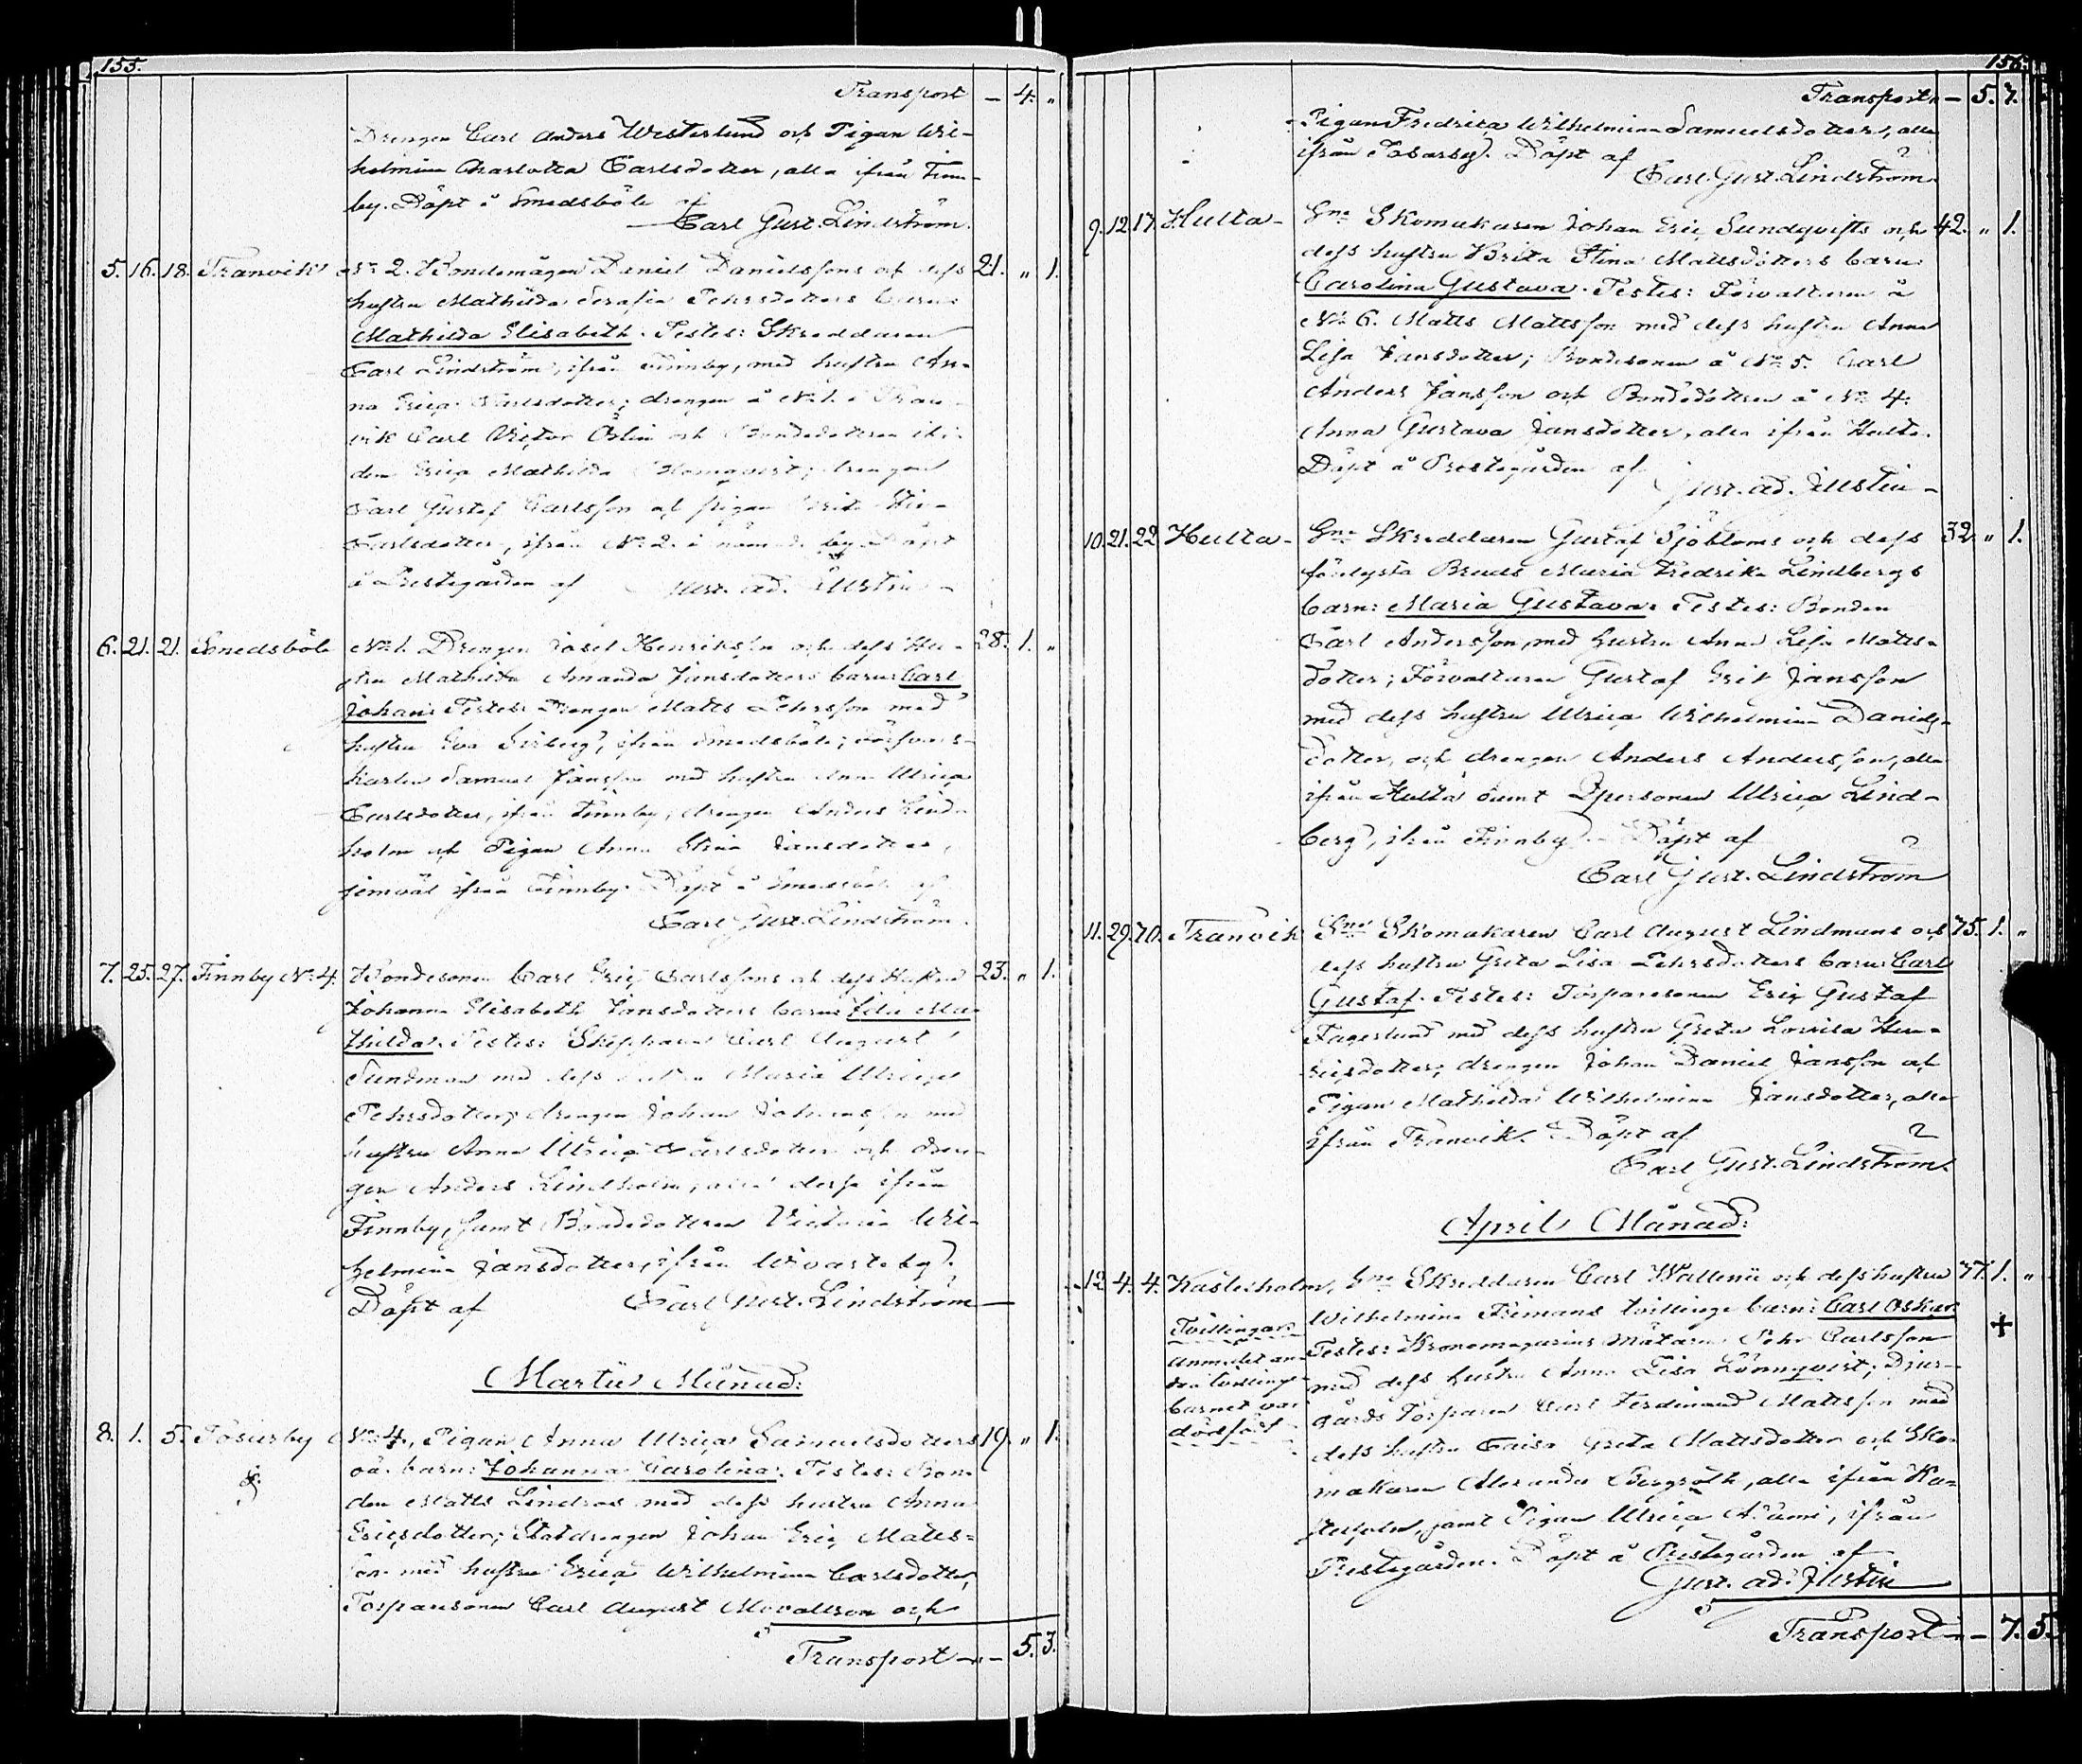 155.
Transport — 4. „
Drengen Carl Anders Westerlund och Pigan Wil-
helmina Charlotta Carlsdotter, alla ifrån Finn-
by. Döpt å Smedsböle af
Carl Gust. Lindström.
5. 16. 18. Tranvik No 2. Bondemågen Daniel Danielssons och dess 21. „ 1.
hustru Mathilda Serafia Pehrsdotters barn:
Mathilda Elisabeth. Testes: Skreddaren
Carl Lindström, ifrån Finnby, med hustru An-
na Erica Carlsdotter; drengen å No 1. i Tran-
vik Carl Victor Öslin och Bondedottren
den Erica Mathilda Holmqvist; drengen
Carl Gustaf Carlsson och pigan Brita Sti-
Carlsdotter, ifrån No 2. i nämnde by. Döpt
å Prestegården af Gust. Ad. Justin
6. 21. 21. Smedsböle No 1. Drengen Josef Henriksson och dess Hu- 28. 1. „
stru Mathilda Amanda Jansdotters barn: Carl
Johan. Testes: Drengen Matts Pehrsson med
hustru Eva Sirberg, ifrån Smedsböle;
karlen Samuel Jansson med hustru Anna Ulrica
Carlsdotter, ifrån Finnby, drengen Anders Lind-
holm och Pigan Anna Stina Jansdotter,
jemväl ifrån Finnby. Döpt å Smedsböle af
Carl Gust. Lindström.
7. 25. 27. Finnby No 4. Bondesonen Carl Eric Carlssons och dess Hustru 23. „ 1.
Johanna Elisabeth Jansdotters barn: Ida Ma-
thilda. Testes: Skepparen Carl August
Sundman med dess hustru Maria Ulrica
Pehrsdotter; drengen Johan Johansson med
hustru Anna Ulrica Carlsdotter och dren-
gen Anders Lindholm, alla desse ifrån
Finnby, samt Bondedottren Victoria Wil-
helmina Jansdotter, ifrån Wivasteby.
Döpt af Carl Gust. Lindström
Martii Månad:
8. 1. 5. Tosarby No 4, Pigan Anna Ulrica Samuelsdotters 19. „ 1.
oä. barn: Johanna Carolina. Testes: Bon-
den Matts Lindroos med dess hustru Anna
Ericsdotter; Statdrengen Johan Eric Matts-
son med hustru Erica Wilhelmina Carlsdotter,
Torparesonen Carl August och
Transport — 5. 3.
156.
Transport — 5. 7.
Pigan Fredrica Wilhelmina Samuelsdotter, alla
ifrån Tosarby. Döpt af
Carl Gust. Lindström
9. 12. 17. Hulta Gne Skomakaren Johan Eric Sundqvists och 42. „ 1.
dess hustru Brita Stina Mattsdotters barn:
Carolina Gustava. Testes: Förvaltaren å
No 6. Matts Mattsson med dess hustru Anna
Lisa Jansdotter; Bondesonen å No 5. Carl
Anders Jansson och Bondedottren å No 4.
Anna Gustava Jansdotter, alla ifrån Hulta.
Döpt å Prestegården af
Gust. Ad. Justin
10. 21. 22. Hulta Gne Skreddaren Gustaf Sjöbloms och dess 32. „ 1.
förlysta Bruds Maria Fredrika Lindbergs
barn: Maria Gustava. Testes: Bonden
Carl Andersson, med hustru Anna Lisa Matts-
dotter; Förvaltaren Gustaf Erik Jansson
med dess hustru Ulrica Wilhelmina Daniels-
dotter, och drengen Anders Andersson, alla
ifrån Hulta samt Qpersonen Ulrica Lind-
berg, ifrån Finnby. Döpt af
Carl Gust. Lindström
11. 29. 70. Tranvik Gne Skomakaren Carl August Lindmans och 75. 1. „
dess hustru Greta Lisa Pehrsdotters barn: Carl
Gustaf. Testes: Torparesonen Eric Gustaf
Fagerlund med dess hustru Greta Lovisa Hen-
ricsdotter; drengen Johan Daniel Jansson och
Pigan Mathilda Wilhelmina Jansdotter, alla
ifrån Tranvik. Döpt af
Carl Gust. Lindström.
April Månad:
12. 4. 4. Kastelholm, Gne Skreddaren Carl Wallenii och dess hustru 77. 1. „
Wilhelmina Frimans tvillinge barn: Carl Oskar
Tvillingar:
anmält an-
dra tvillinge-
barnet var
dödfödt
Testes: Kronomagasins Mätaren Pehr Carlsson
med dess hustru Anna Lisa Lönnqvist; Djur-
gårds Torparen Carl Ferdinand Mattsson med
dess hustru Caisa Greta Mattsdotter och Sko-
makaren Alexander Bergroth, alla ifrån Ka-
stelholm, samt Pigan Ulrica Adami, ifrån
Prestegården. Döpt å Prestegården af
Gust. Ad. Justin
Transport — 7. 5.